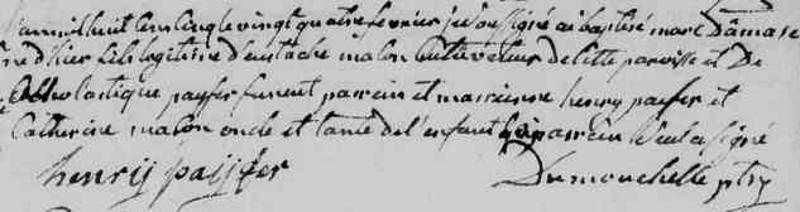 L'an mil huit cens vingt le vingt quatre fevrier je sousigné ai baptisé marc Dâmase
né d'hier fils legitime d'eustache malon Cultivateur de cette paroisse et De
scholastique payfer furent parrein et marrienne henry payfer et
Catherine malon oncle et tante de l'enfant le parrein seul a signé
henrij paijfer Dumouchelle ptre